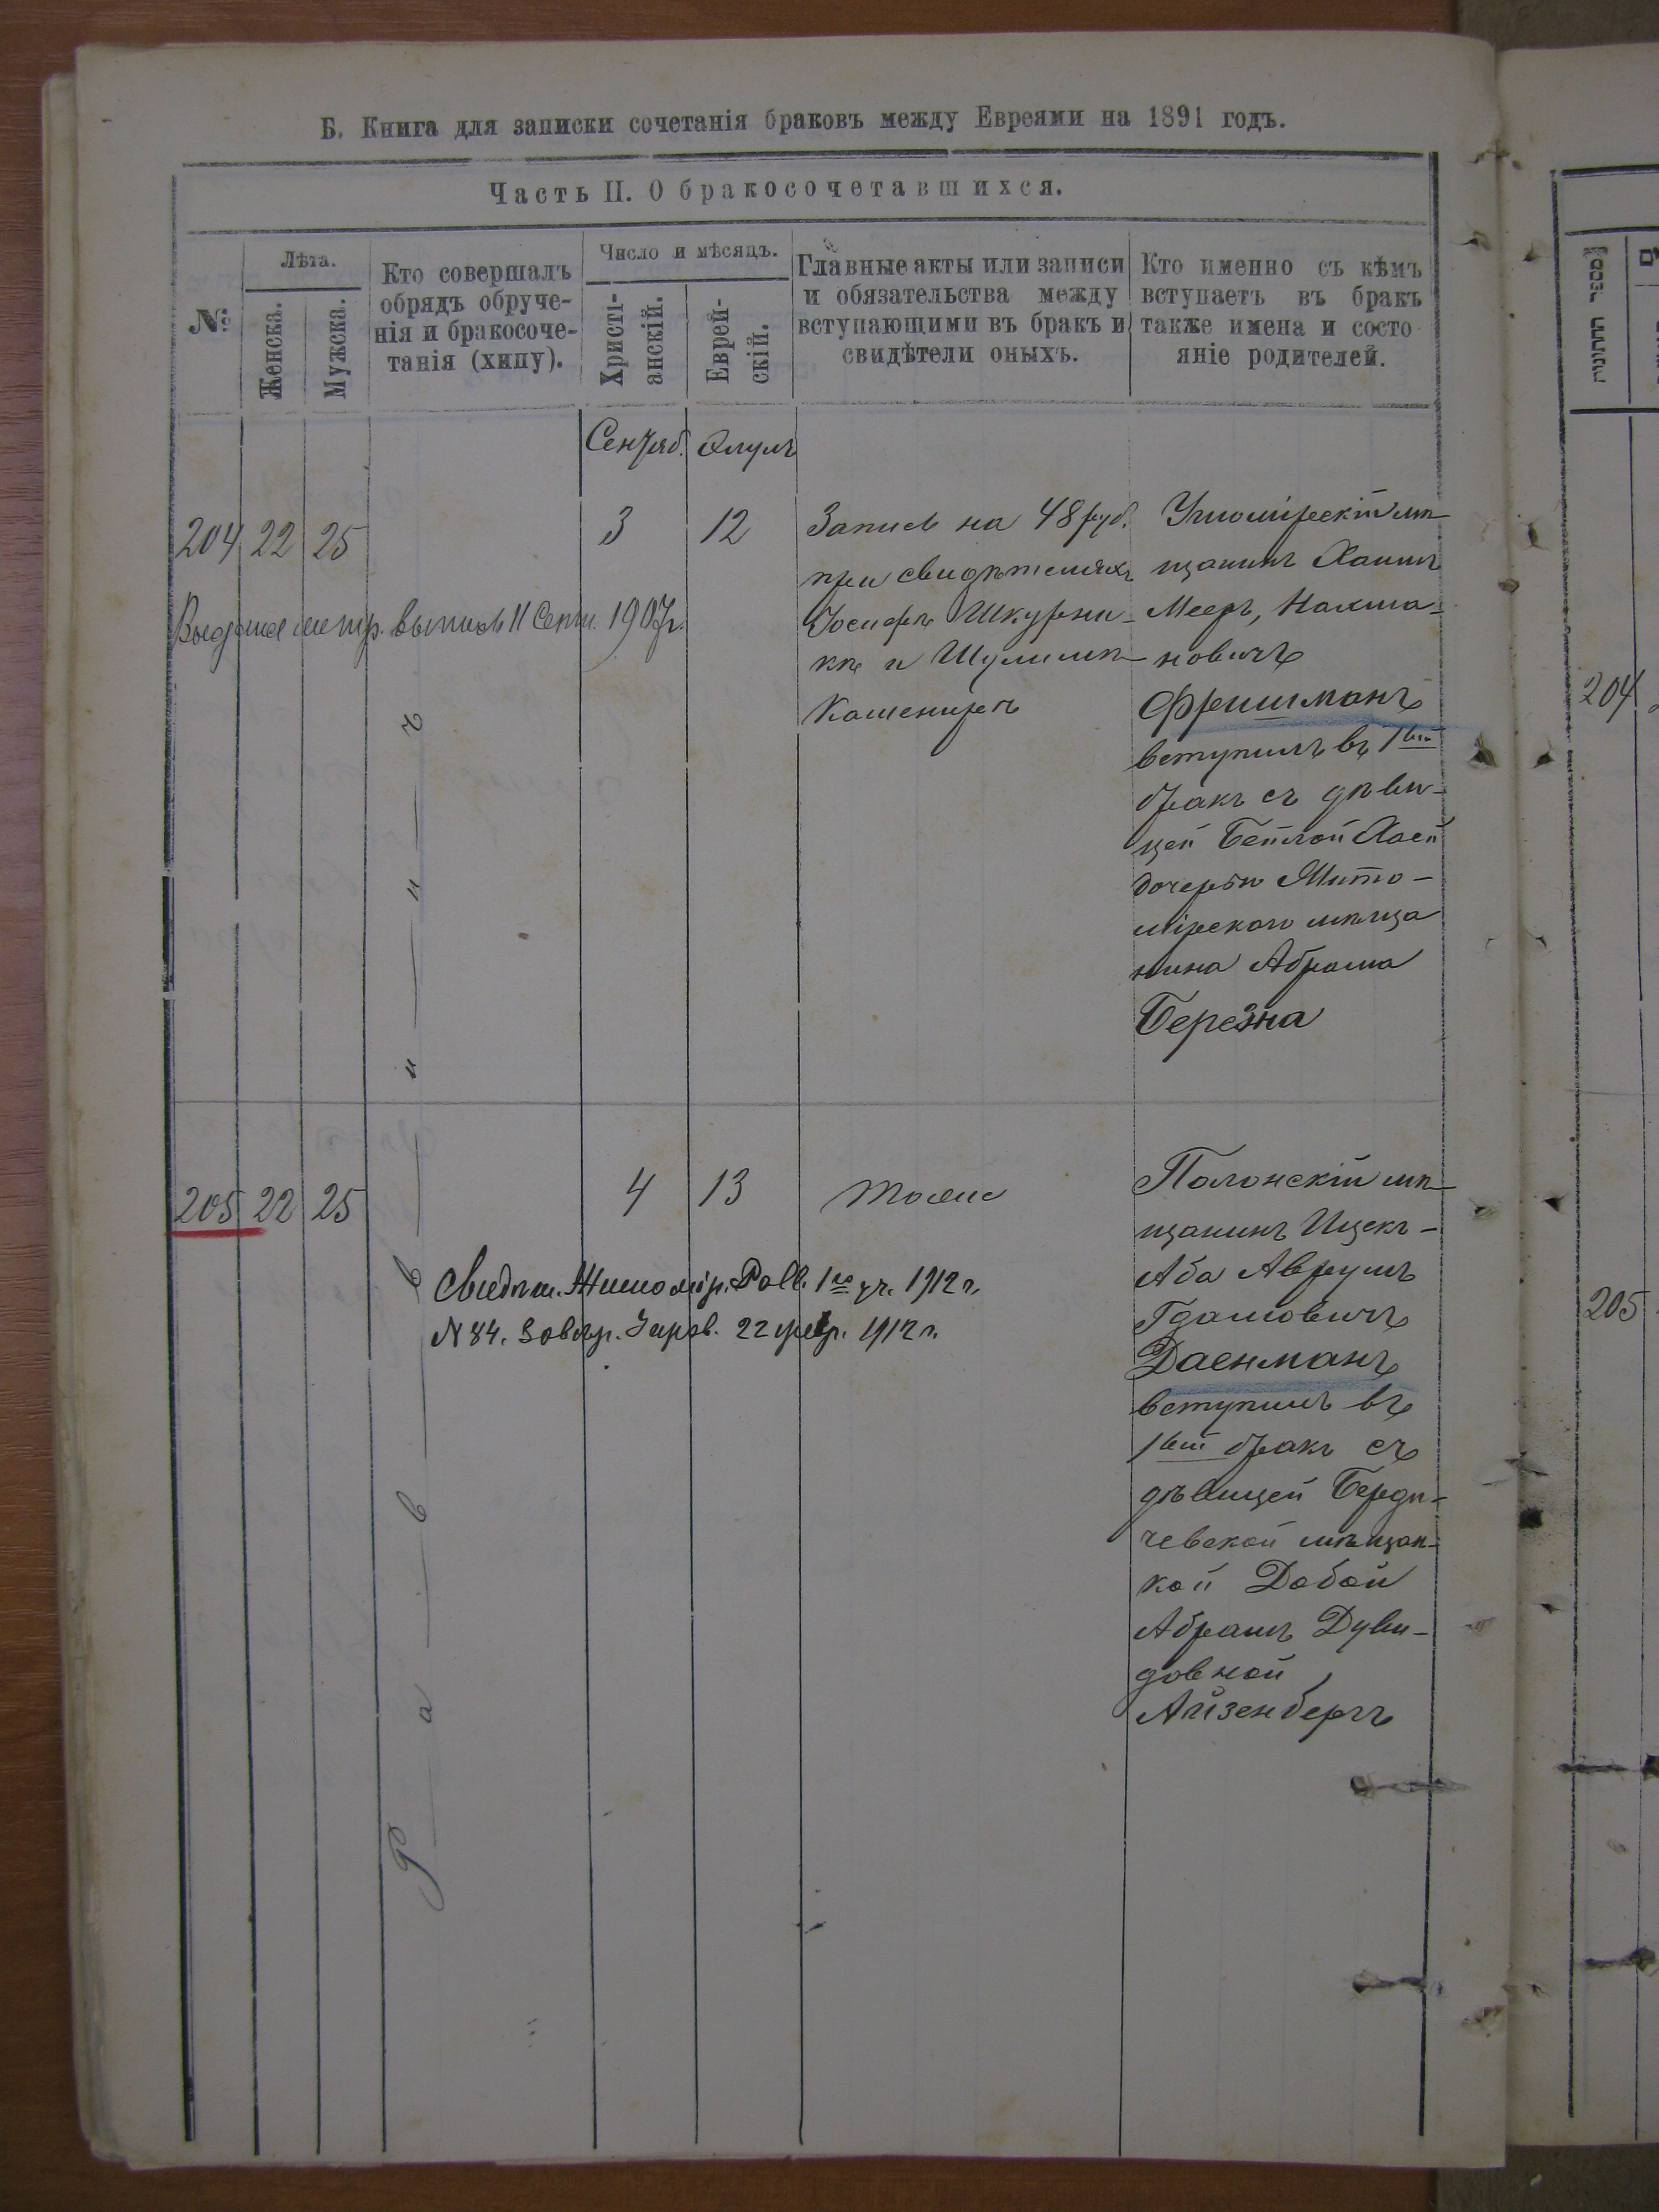 Б. Книга для записки сочетанія браковъ между Евреями на 1891 годъ.
Часть II. О бракосочетавшихся.
№
Лѣта.
Женска.
Мужска.
Кто совершалъ
обрядъ обруче-
нія и бракосоче-
танія (хипу).
Число и мѣсяцъ.
Христі-
анскій.
Еврей-
скій.
Главные акты или записи
и обязательства между
вступающими въ бракъ и
свидѣтели оныхъ.
Кто именно съ кѣмъ
вступаетъ въ бракъ
также имена и состо
яніе родителей.
Сентяб. Элулъ
204 22 25
3 12
Запись на 48 руб.
при свидѣтеляхъ
Іосифѣ Шкурни-
кѣ и Шулимѣ
Кашенирѣ
мѣ-
щанинъ Хаимъ
Мееръ, Нахма-
новичъ
Фришманъ
вступилъ въ 1вый
бракъ съ дѣви-
цей Бейлой Хаей
дочерью Жито-
мірскаго мѣща
нина Абрама
Березна
Выдана метр. выпись 11 Сент. 1907г.
Раввинъ
205 22 25
4 13
тоже
Полонскій мѣ-
щанинъ Ицекъ-
Аба Аврумъ
Гдаловичъ
вступилъ въ
1вый бракъ съ
дѣвицей Берди-
чевской мѣщан-
кой Добой
Абрамъ Дуви-
довной
Айзенбергъ
Свидѣт. Житомір. 1го уч. 1912 г.
N 84. 22 февр. 1912 г.
204
205